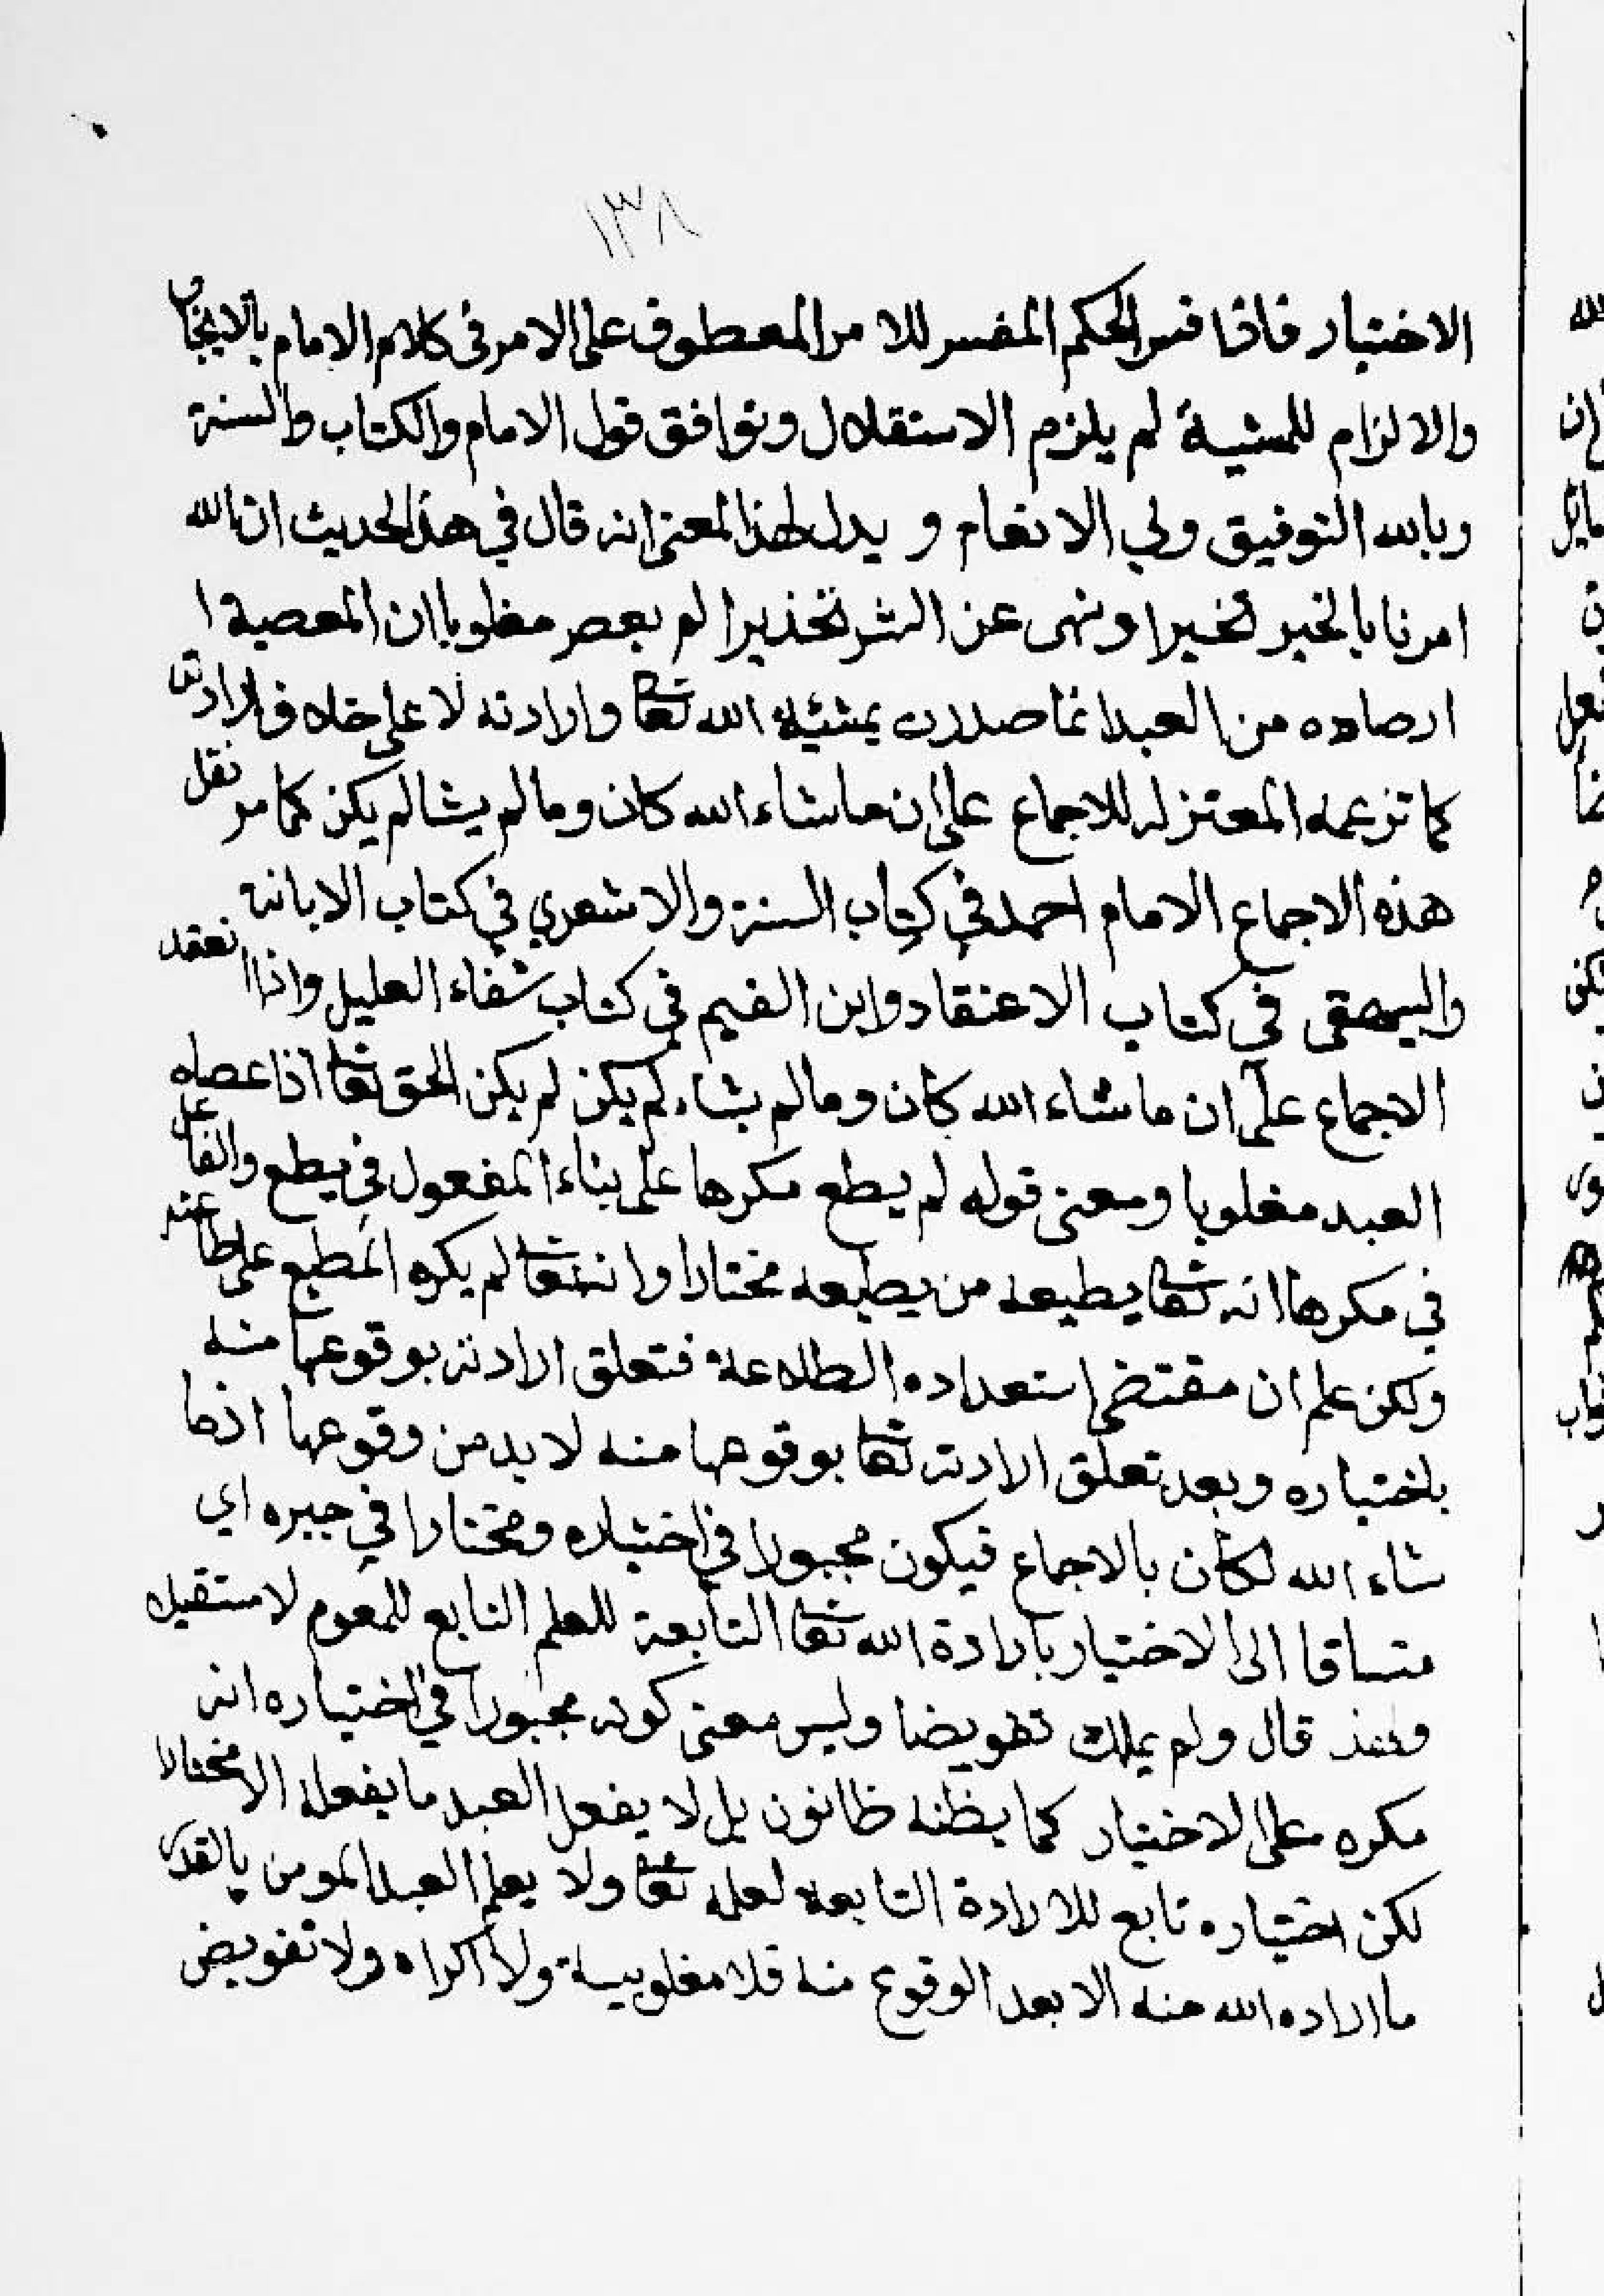 ١٣٨
الاختيار فاذا فسر الحكم المفسر للامر المعطوف على الامر في كلام الامام بالايجاب
والالزام للمشية لم يلزم الاستقلال وتوافق قول الامام والكتاب والسنة
وبالله التوفيق ولي الانعام و يدل لهذا المعنى انه قال في هذا الحديث ان الله
امرنا بالخير تخييرا ونهى عن الشر تحذيرا لم يعص مغلوبا ان المعصية ا
ارصاده من العبد انما صدرت بمشيئة الله تعا وارادته لا على خلاف ارادته
كما تزعمه المعتزله للاجماع على ان ما شاء الله كان وما لم يشا لم يكن كما مر نقل
هذه الاجماع الامام احمد في كتاب السنة والاشعري في كتاب الابانة
والبيهقي في كتاب الاعتقاد وابن القيم في كتاب شفاء العليل واذا انعقد
الاجماع على ان ما شاء الله كان وما لم يشاء لم يكن لم يكن الحق تعا اذا عصاه
العبد مغلوبا ومعنى قوله لم يطع مكرها على بناء المفعول في يطع والفاعل
في مكرها انه تعا يطيعه من يطيعه مختارا وانه تعا لم يكره المطيع على طاعته
ولكن علم ان مقتضى استعداده الطاعة فتعلق ارادته بوقوعها منه
باختياره وبعد تعلق ارادته تعا بوقوعها منه لا بد من وقوعها اذ ما
شاء الله لكان بالاجماع فيكون مجبورا في اختياره ومختارا في جبره اي
متساقا الى الاختيار بارادة الله تعا التابعة للعلم التابع للمعوم لا مستقيلا
قال ولم يملك تفويضا وليس معنى كونه مجبورا في اختياره انه
مكره على الاختيار كما يظنه ظانون بل لا يفعل العبد ما يفعله الا مختارا
لكن اختياره تابع للارادة التابعة لعلمه تعا ولا يعلم العبد المومن بالقدر
ما اراده الله منه الا بعد الوقوع منه فلا مغلوبية ولا اكراه ولا تفويض